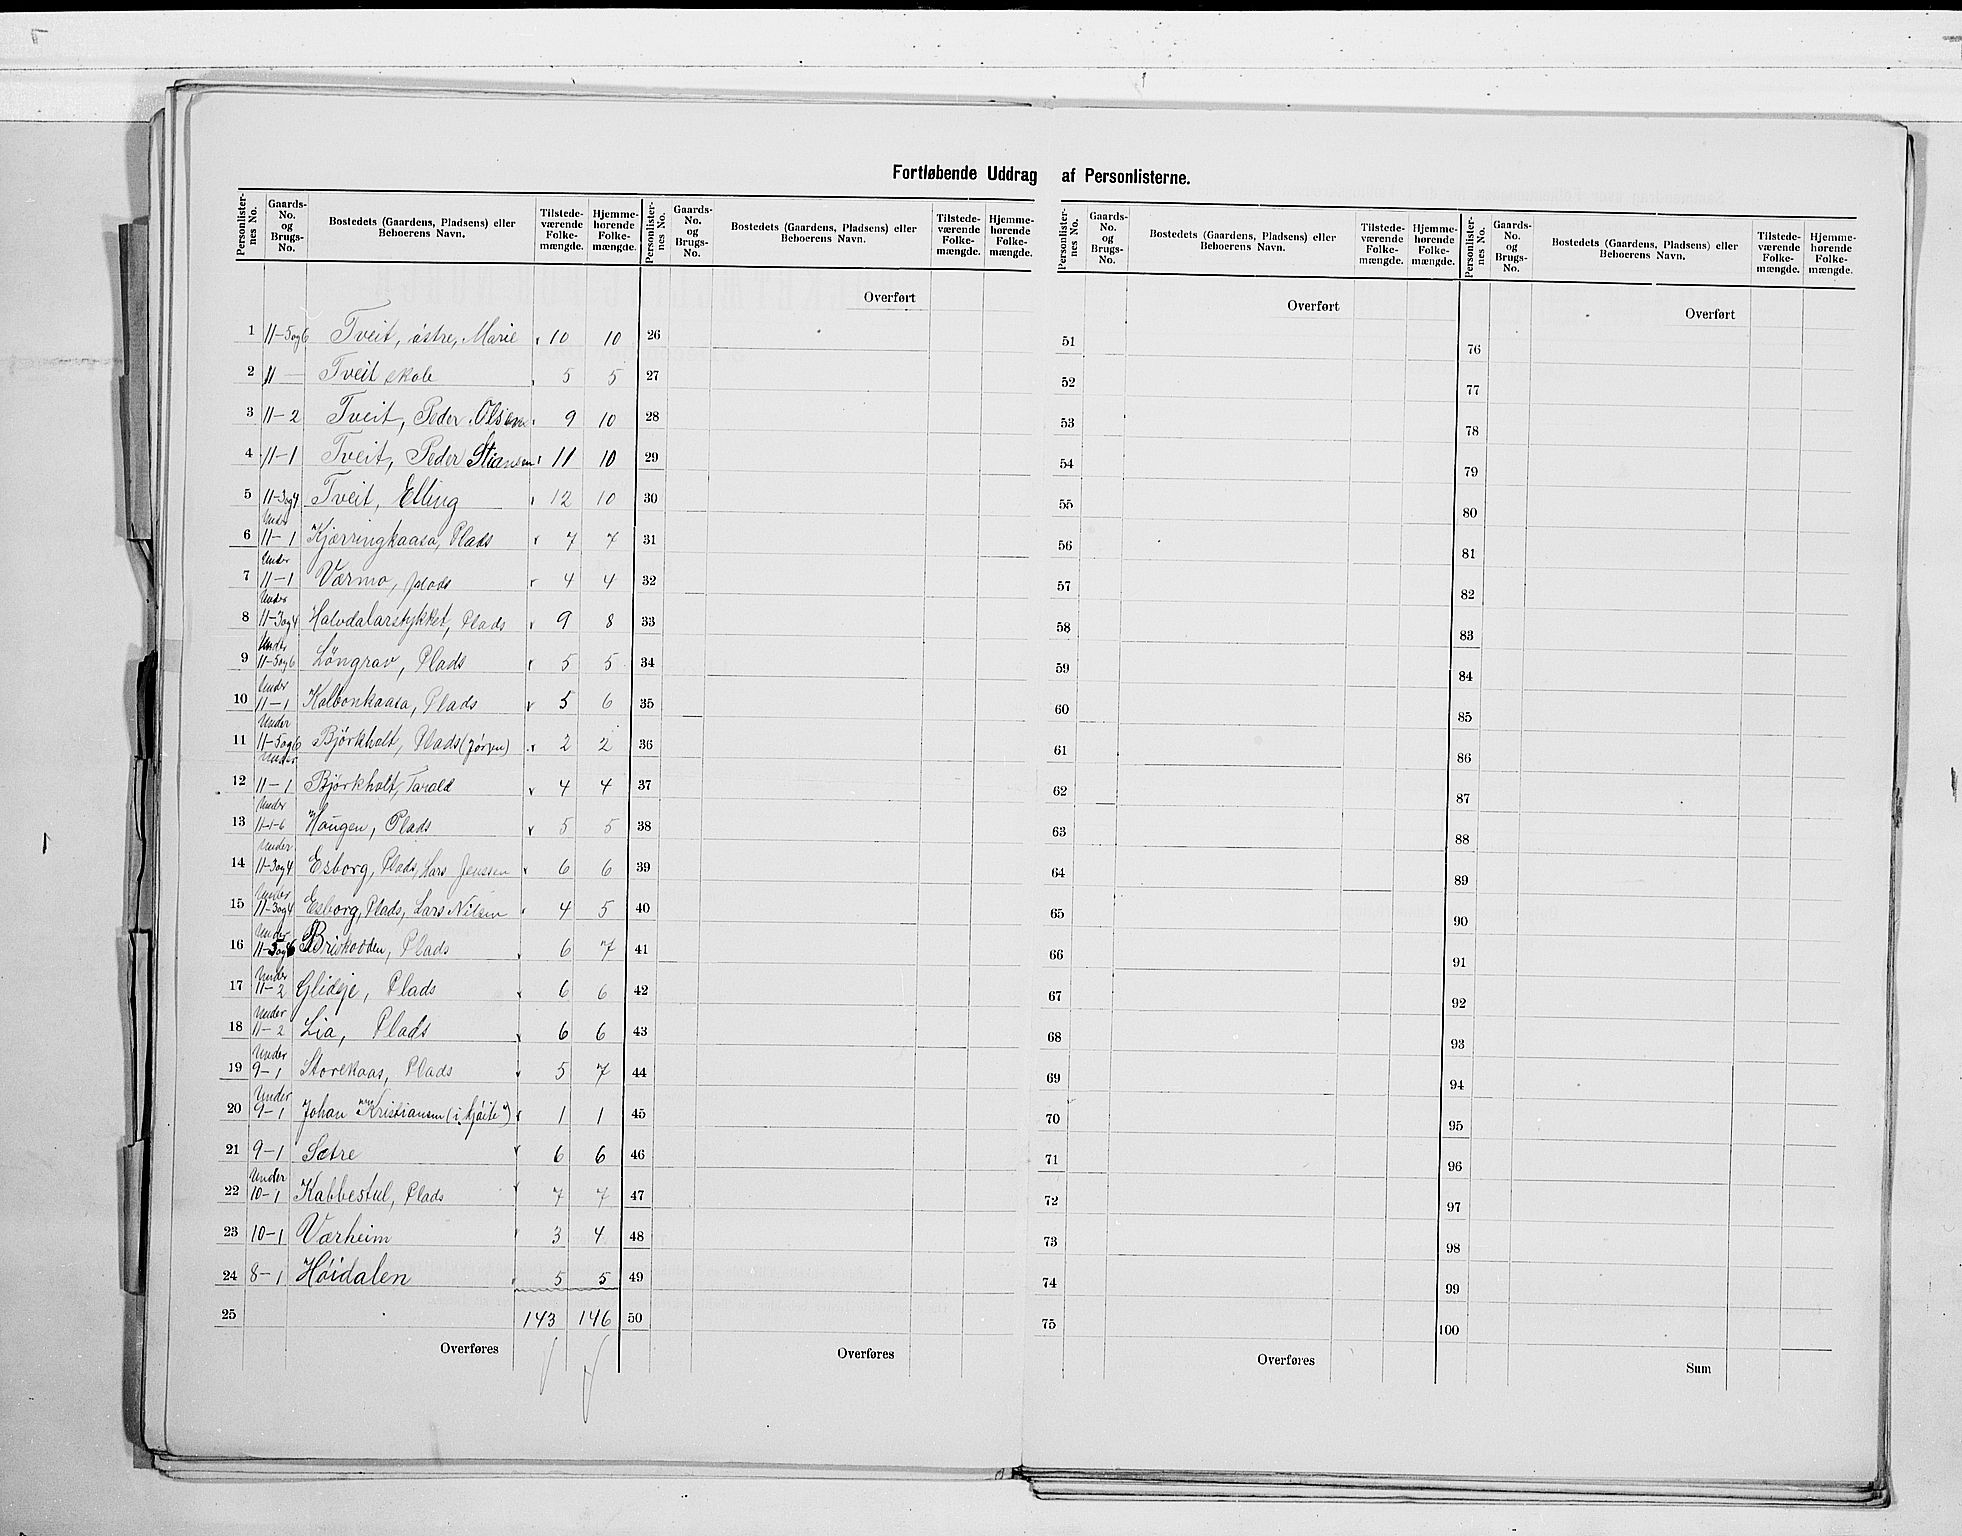 Fortløbende Uddrag af Personlisterne.
Personlister-nes No. Gaards-No. og Brugs-No. Bostedets (Gaardens, Pladsens) eller Beboerens Navn. Tilstede-værende Folke-mængde. Hjemme-hørende Folke-mængde. Personlister-nes No. Gaards-No. og Brugs-No. Bostedets (Gaardens, Pladsens) eller Beboerens Navn. Tilstede-værende Folke-mængde. Hjemme-hørende Folke-mængde. Personlister-nes No. Gaards-No. og Brugs-No. Bostedets (Gaardens, Pladsens) eller Beboerens Navn. Tilstede-værende Folke-mængde. Hjemme-hørende Folke-mængde. Personlister-nes No. Gaards-No. og Brugs-No. Bostedets (Gaardens, Pladsens) eller Beboerens Navn. Tilstede-værende Folke-mængde. Hjemme-hørende Folke-mængde.
Overført Overført Overført
1 11-5og6 Tveit, østre, Marie 10 10 26 51 76
2 11 — Tveit skole 5 5 27 52 77
3 11-2 Tveit, Peder Olsen 9 10 28 53 78
4 11-1 Tveit, Peder Stiansen 11 10 29 54 79
5 11-3og4 Tveit, Elling 12 10 30 55 80
6 Under 11-1 Kjærringkaasa, Plads 7 7 31 56 81
7 Under 11-1 Værmo, Plads 4 4 32 57 82
8 Under 11-3og4 Halvdalarstykket, Plads 9 8 33 58 83
9 Under 11-5og6 Löngrav, Plads 5 5 34 59 84
10 Under 11-1 Kolbonkaasa, Plads 5 6 35 60 85
11 Under 11-5og6 Björkholt, Plads (Jörgen) 2 2 36 61 86
12 Under 11-1 Björkholt, Tarald 4 4 37 62 87
13 Under 11-1-6 Haugen, Plads 5 5 38 63 88
14 Under 11-3og4 Esborg, Plads, Lars Jenssen 6 6 39 64 89
15 Under 11-3og4 Esborg, Plads, Lars Nilsen 4 5 40 65 90
16 Under 11-5og6 Briskodden, Plads 6 7 41 66 91
17 Under 11-2 Glidsje, Plads 6 6 42 67 92
18 Under 11-2 Lia, Plads 6 6 43 68 93
19 Under 9-1 Storekaas, Plads 5 7 44 69 94
20 Under 9-1 Johan Kristiansen 1 1 45 70 95
21 9-1 Sætre 6 6 46 71 96
22 Under 10-1 Kabbestul, Plads 7 7 47 72 97
23 10-1 Værheim 3 4 48 73 98
24 8-1 Höidalen 5 5 49 74 99
25 143 146 50 75 100
Overføres Overføres Overføres Sum